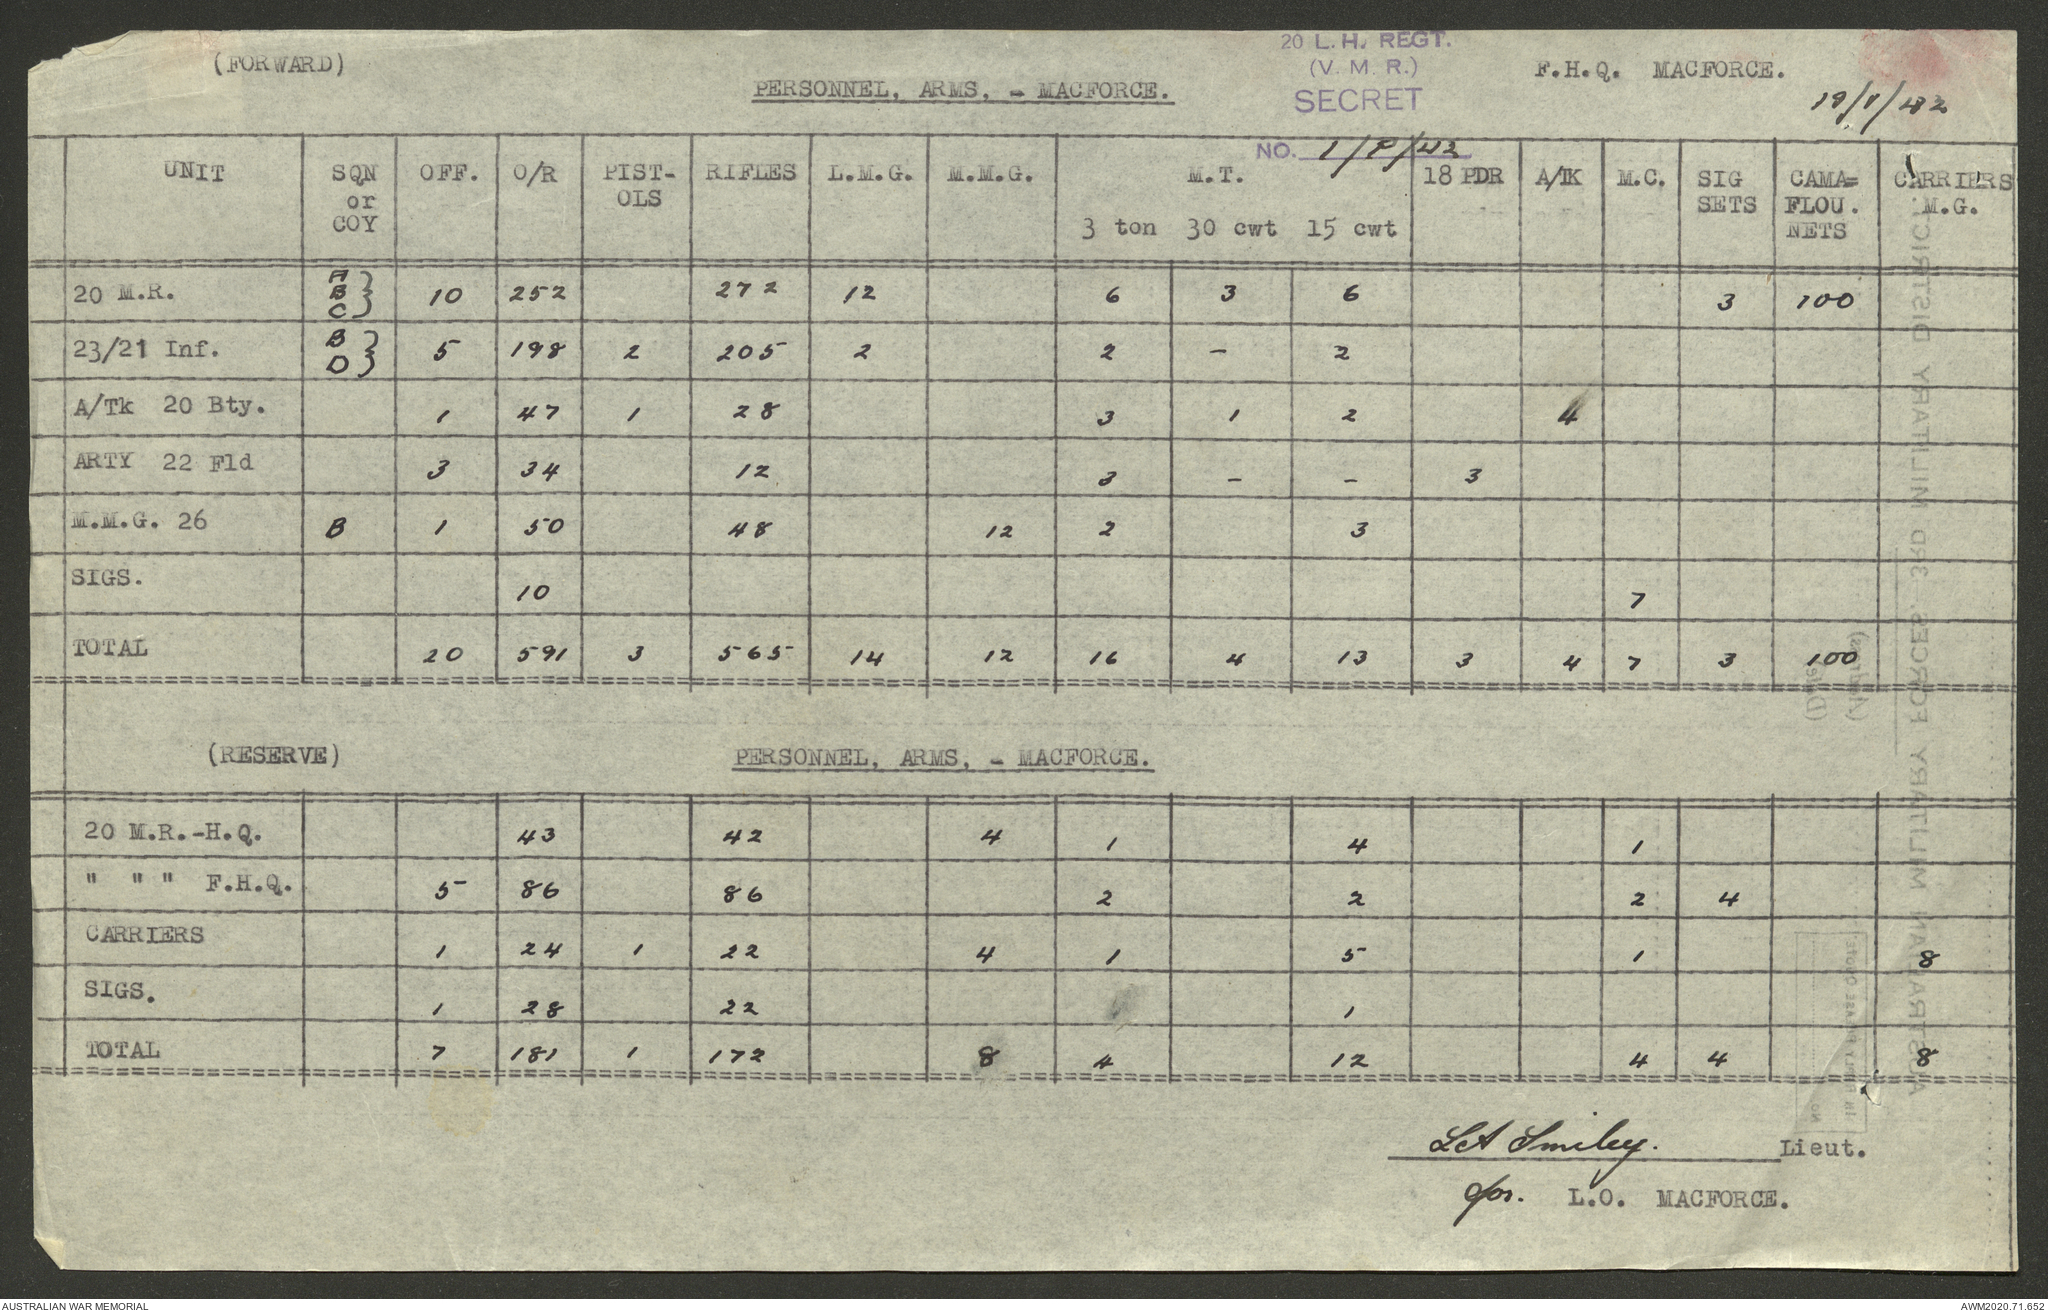 (FORWARD)
PERSONNEL, ARMS, - MACFORCE.
20 L.H. REGT.
(V. M. R.)
SECRET
NO. 1/P/42
F.H.Q. MACFORCE.
19/V/42
UNIT SQN or COY OFF. O/R PIST-OLS RIFLES L.M.G. M.M.G. M.T. 3 ton 30 cwt 15 cwt 18 PDR A/TK M.C. SIG SETS CAMA=FLOU. NETS CARRIERS M.G.
20 M.R. A B C } 10 252 272 12 6 3 6 3 100
23/21 Inf. B D } 5 198 2 205 2 2 - 2
A/Tk 20 Bty. 1 47 1 28 3 1 2 4
ARTY 22 Fld 3 34 12 3 - - 3
M.M.G. 26 B 1 50 48 12 2 3
SIGS. 10 7
TOTAL 20 591 3 565 14 12 16 4 13 3 4 7 3 100
(RESERVE) PERSONNEL, ARMS, - MACFORCE.
20 M.R.-H.Q. 43 42 4 1 4 1
" " " F.H.Q. 5 86 86 2 2 2 4
CARRIERS 1 24 1 22 4 1 5 1 8
SIGS. 1 28 22 1
TOTAL 7 181 1 172 8 4 12 4 4 8
Smiley. Lieut.
for. L.O. MACFORCE.
AUSTRALIAN MILITARY FORCES. 3RD MILITARY DISTRICT.
(Address)
(Date)
In Reply Please Quote
No
AUSTRALIAN WAR MEMORIAL
AWM2020.71.652